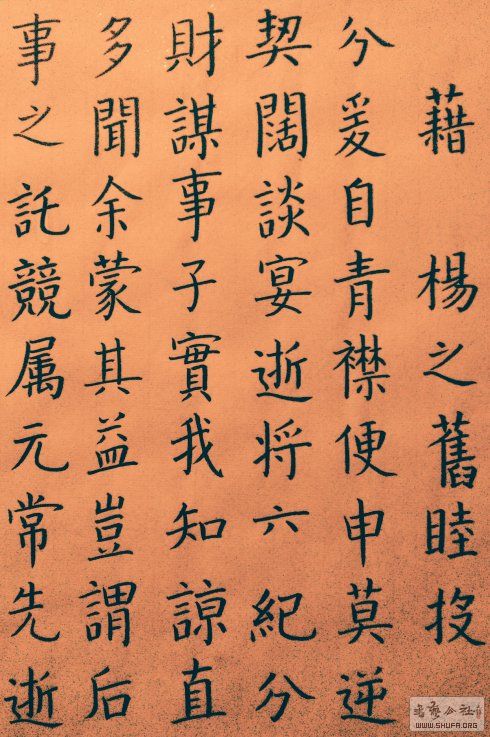 藉楊之舊睦投
分爰自青襟便申莫逆
契闊談宴逝将六紀分
財謀事子實我知諒直
多聞余蒙其益豈謂后
事之託競属元常先逝
WWW.SHUFA.ORG